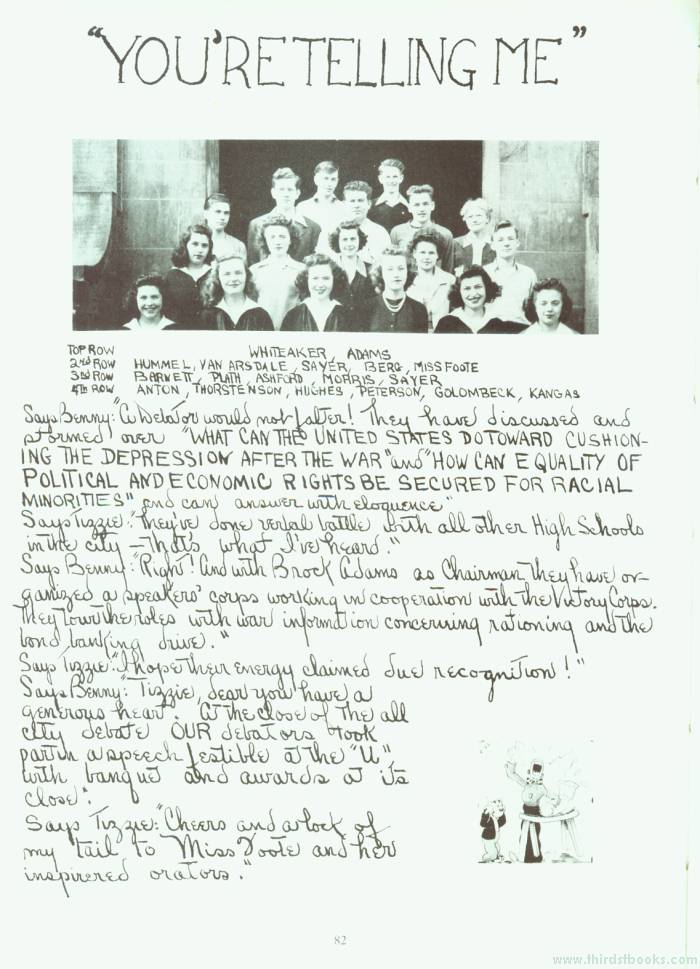 "YOU'RE TELLING ME"
TOP ROW WHITEAKER, ADAMS
2nd ROW HUMMEL, VAN ARSDALE, SAYER, BERG, MISS FOOTE
3rd ROW BARNETT, PLATH, ASHFORD, MORRIS, SAYER
4th ROW ANTON, THORSTENSON, HUGHES, PETERSON, GOLOMBECK, KANGAS
Says Benny: "A Debator would not falter! They have discussed and
stormed over "WHAT CAN THE UNITED STATES DO TOWARD CUSHION-
ING THE DEPRESSION AFTER THE WAR "and" HOW CAN EQUALITY OF
POLITICAL AND ECONOMIC RIGHTS BE SECURED FOR RACIAL
MINORITIES" and can answer with eloquence"
Says Tizzie: "They've done verbal battle with all other High Schools
in the city — that's what I've heard."
Says Benny: "Right! And with Brock Adams as Chairman, they have or-
ganized a speakers' corps working in cooperation with the Victory Corps.
They tour the roles with war information concerning rationing and the
bond, banking drive."
Says Tizzie: "I hope their energy claimed due recognition!"
Says Benny: "Tizzie, dear you have a
generous heart. At the close of the all
city debate OUR debators took
part in a speech festible at the "U"
with banquet and awards at its
close."
Says Tizzie: "Cheers and a lock of
my tail to Miss Foote and her
inspirered orators."
82
www.thirdstbooks.com